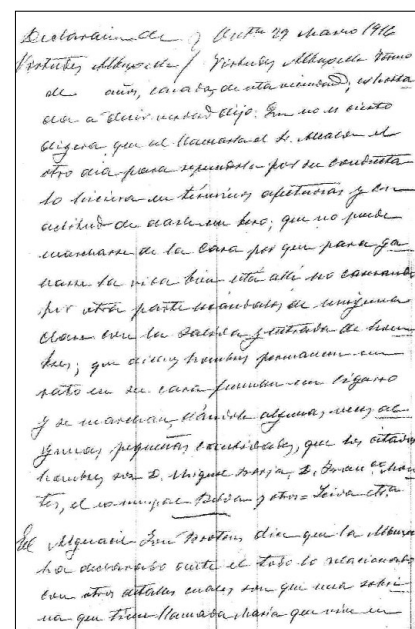 Declaración de } 29 Marzo 1916
Virtudes / Virtudes
de años, casada, de esta vecindad,
da a decir verdad dijo: Que no es cierto
dijera que al llamarla el Sr. Alcalde el
otro día para reprenderla por su conducta
lo hiciera en términos afectuosos y en
actitud de darle un beso; que no puede
marcharse de la casa por que para ga
narse la vida bien está allí no causando
por otra parte escándalos de ninguna
clase con la salida y entrada de hom
bres; que dichos hombres permanecen un
rato en su casa fuman un cigarro
y se marchan, dándole algunas veces al
gunas pequeñas cantidades, que los citados
hombres son D. Miguel Borja, D. Juan
tes, el y otros =
El Alguacil dice que la
ha declarado ante el todo lo relacionado
con otros detalles cuales son que una sobri
na que tiene llamada María que vive en